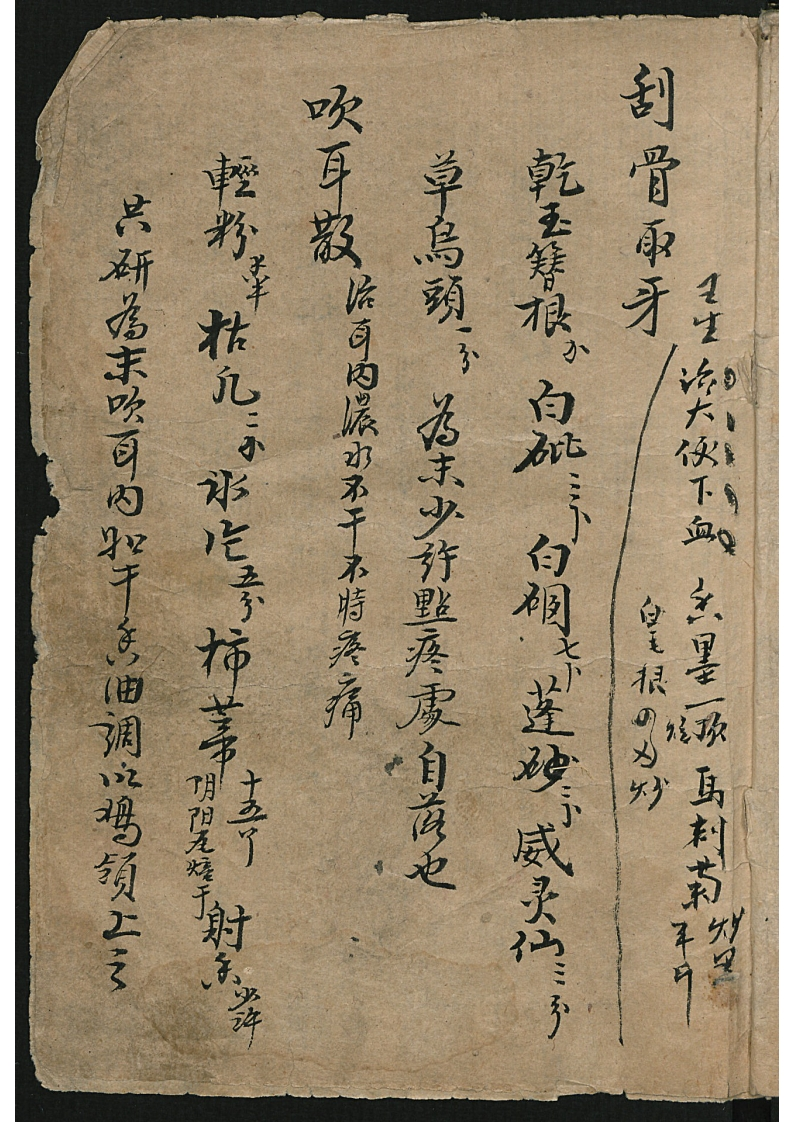 治大便下血 墨一 馬刺 炒黑
白毛根 炒
刮骨取牙
乾玉簪根 白砒三卜 白硇七卜 蓬砂二卜 威灵仙三分
草烏頭一分 為末少許點疼處自落也
吹耳散 治耳內濃水不干不時疼痛
輕粉 枯凡二 氷片五分 柿蒂十五个 阴阳瓦焙干 射香少許
共研為末吹耳內如干香油調以鵝領上之